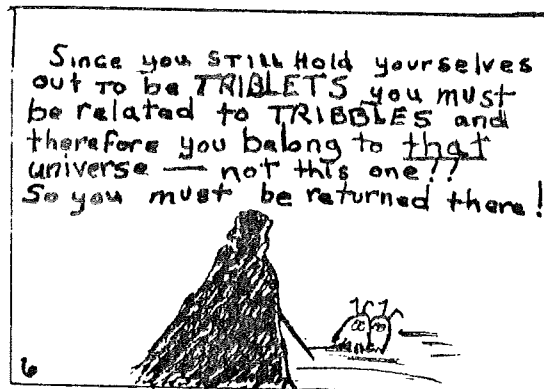 Since you STILL Hold yourselves
out to be TRIBLETS you must
be related to TRIBBLES and
therefore you belong to that
universe — not this one!!
So you must be returned there!
6